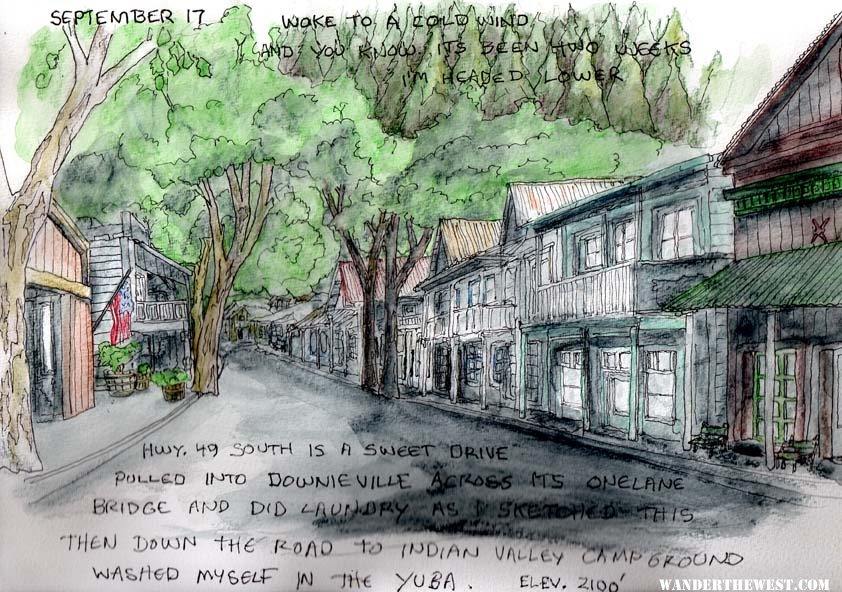 SEPTEMBER 17
WOKE TO A COLD WIND
AND YOU KNOW ITS BEEN TWO WEEKS
I'M HEADED LOWER
HWY. 49 SOUTH IS A SWEET DRIVE
PULLED INTO DOWNIEVILLE ACROSS ITS ONELANE
BRIDGE AND DID LAUNDRY AS I SKETCHED THIS
THEN DOWN THE ROAD TO INDIAN VALLEY CAMPGROUND
WASHED MYSELF IN THE YUBA. ELEV. 2100'
WANDERTHEWEST.COM